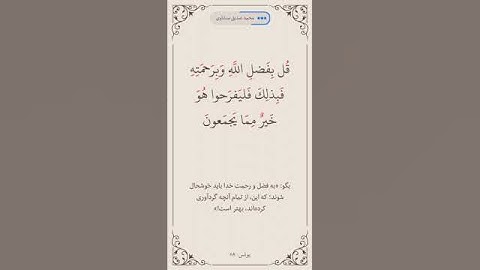 محمد صدیق منشاوی
قُل بِفَضلِ اللَّهِ وَبِرَحمَتِهِ
فَبِذلِكَ فَليَفرَحوا هُوَ
خَيرٌ مِمّا يَجمَعونَ
بگو: «به فضل و رحمت خدا باید خوشحال
شوند؛ که این، از تمام آنچه گردآوری
کرده‌اند، بهتر است!»